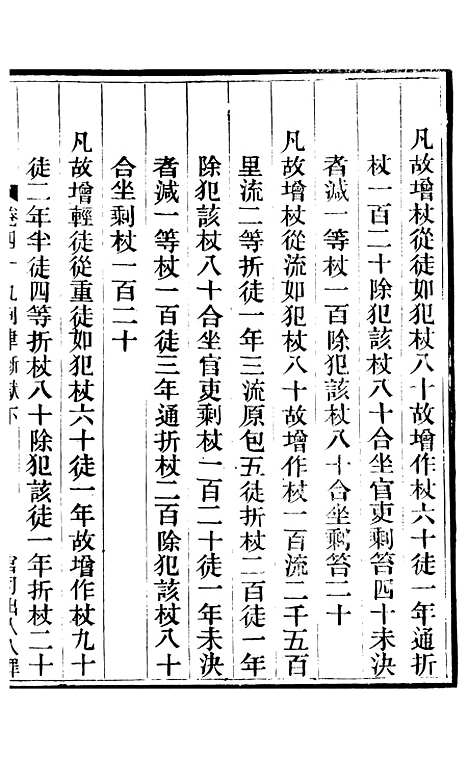 凡故增杖從徒如犯杖八十故增作杖六十徒一年通折
杖一百二十除犯該杖八十合坐官吏剩笞四十未決
者減一等杖一百除犯該杖八十合坐剩笞二十
凡故增杖從流如犯杖八十故增作杖一百流二千五百
里流二等折徒一年三流原包五徒折杖二百徒一年
除犯該杖八十合坐官吏剩杖一百二十徒一年未決
者減一等杖一百徒三年通折杖二百除犯該杖八十
合坐剩杖一百二十
凡故增輕徒從重徒如犯杖六十徒一年故增作杖九十
徒二年半徒四等折杖八十除犯該徒一年折杖二十
卷四十九刑律斷獄下 官司出入人罪